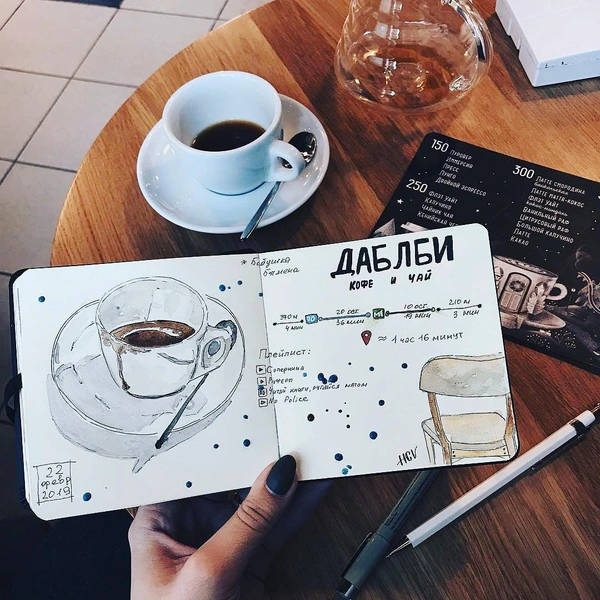 150 ПУРОВЕР
ИММЕРСИЯ
ПРЕСС
ЛУНГО
ДВОЙНОЙ ЭСПРЕССО
250 ФЛЭТ УАЙТ
КАПУЧИНО
ЧАЙНИК ЧАЯ
300 ЛАТТЕ СМОРОДИНА
ЛАТТЕ МАТЧА-КОКОС
ФЛЭТ УАЙТ
ВАНИЛЬНЫЙ РАФ
ЦИТРУСОВЫЙ РАФ
БОЛЬШОЙ КАПУЧИНО
ЛАТТЕ
КАКАО
* Бабушка
Бэтмена
ДАБЛБИ
КОФЕ И ЧАЙ
390 м 20 ост 10 ост 210 м
4 мин 36 мин 19 мин 3 мин
≈ 1 час 16 минут
Плейлист:
Соперница
Читай книги, ругайся матом
No Police
22
февр
2019